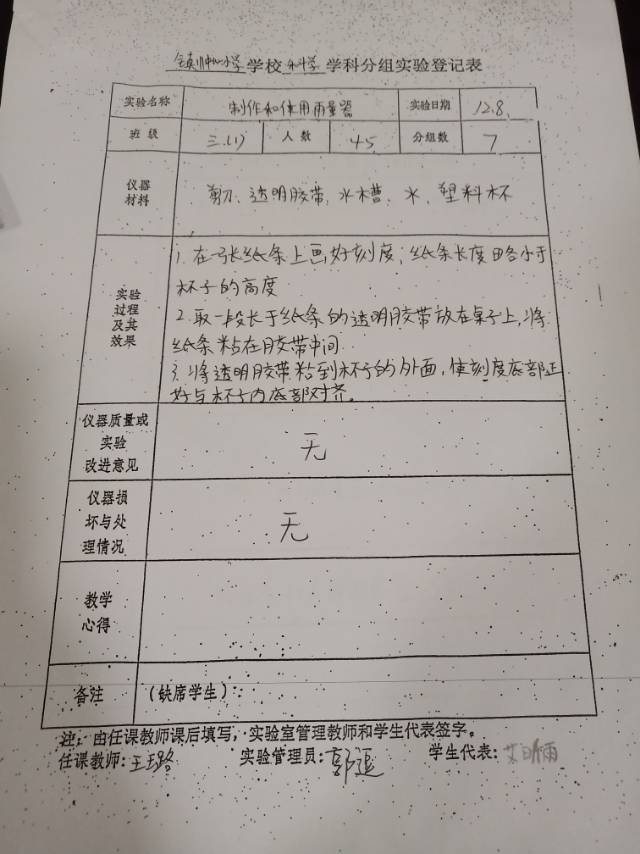 镇中心小学学校科学学科分组实验登记表
实验名称 制作和使用雨量器 实验日期 12.8.
班级 三.(1) 人数 45 分组数 7
仪器材料 剪刀、透明胶带、水槽、水、塑料杯
实验过程及其效果
1. 在一张纸条上画好刻度,纸条长度略小于
杯子的高度
2. 取一段长于纸条的透明胶带放在桌子上,将
纸条粘在胶带中间.
3. 将透明胶带粘到杯子的外面,使刻度底部正
好与杯子内底部对齐。
仪器质量或实验改进意见 无
仪器损坏与处理情况 无
教学心得
备注 (缺席学生):
注:由任课教师课后填写,实验室管理教师和学生代表签字。
任课教师:王璐 实验管理员:郭 学生代表:艾